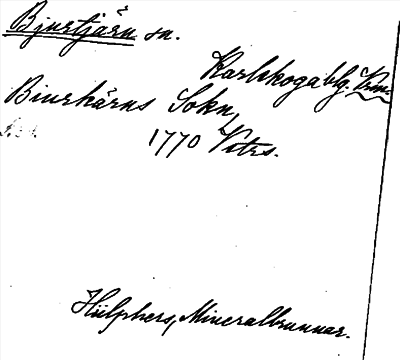 Bjurtjärn sn.
Karlskogabg. Vrm.
Biurkärns Sokn,
1770 Vitrs.
Hülphers, Mineralbrunnar.